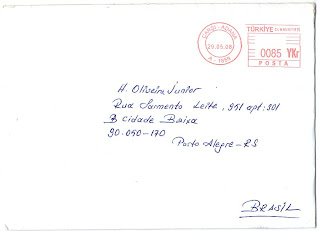 ÇARŞI-ADANA
29.05.08
TÜRKİYE CUMHURİYETİ
0085 YKr
POSTA
H. Oliveira Junior
Rua Sarmento Leite, 951 apt: 301
B cidade Baixa
90.050-170
Porto Alegre-RS
BRASİL